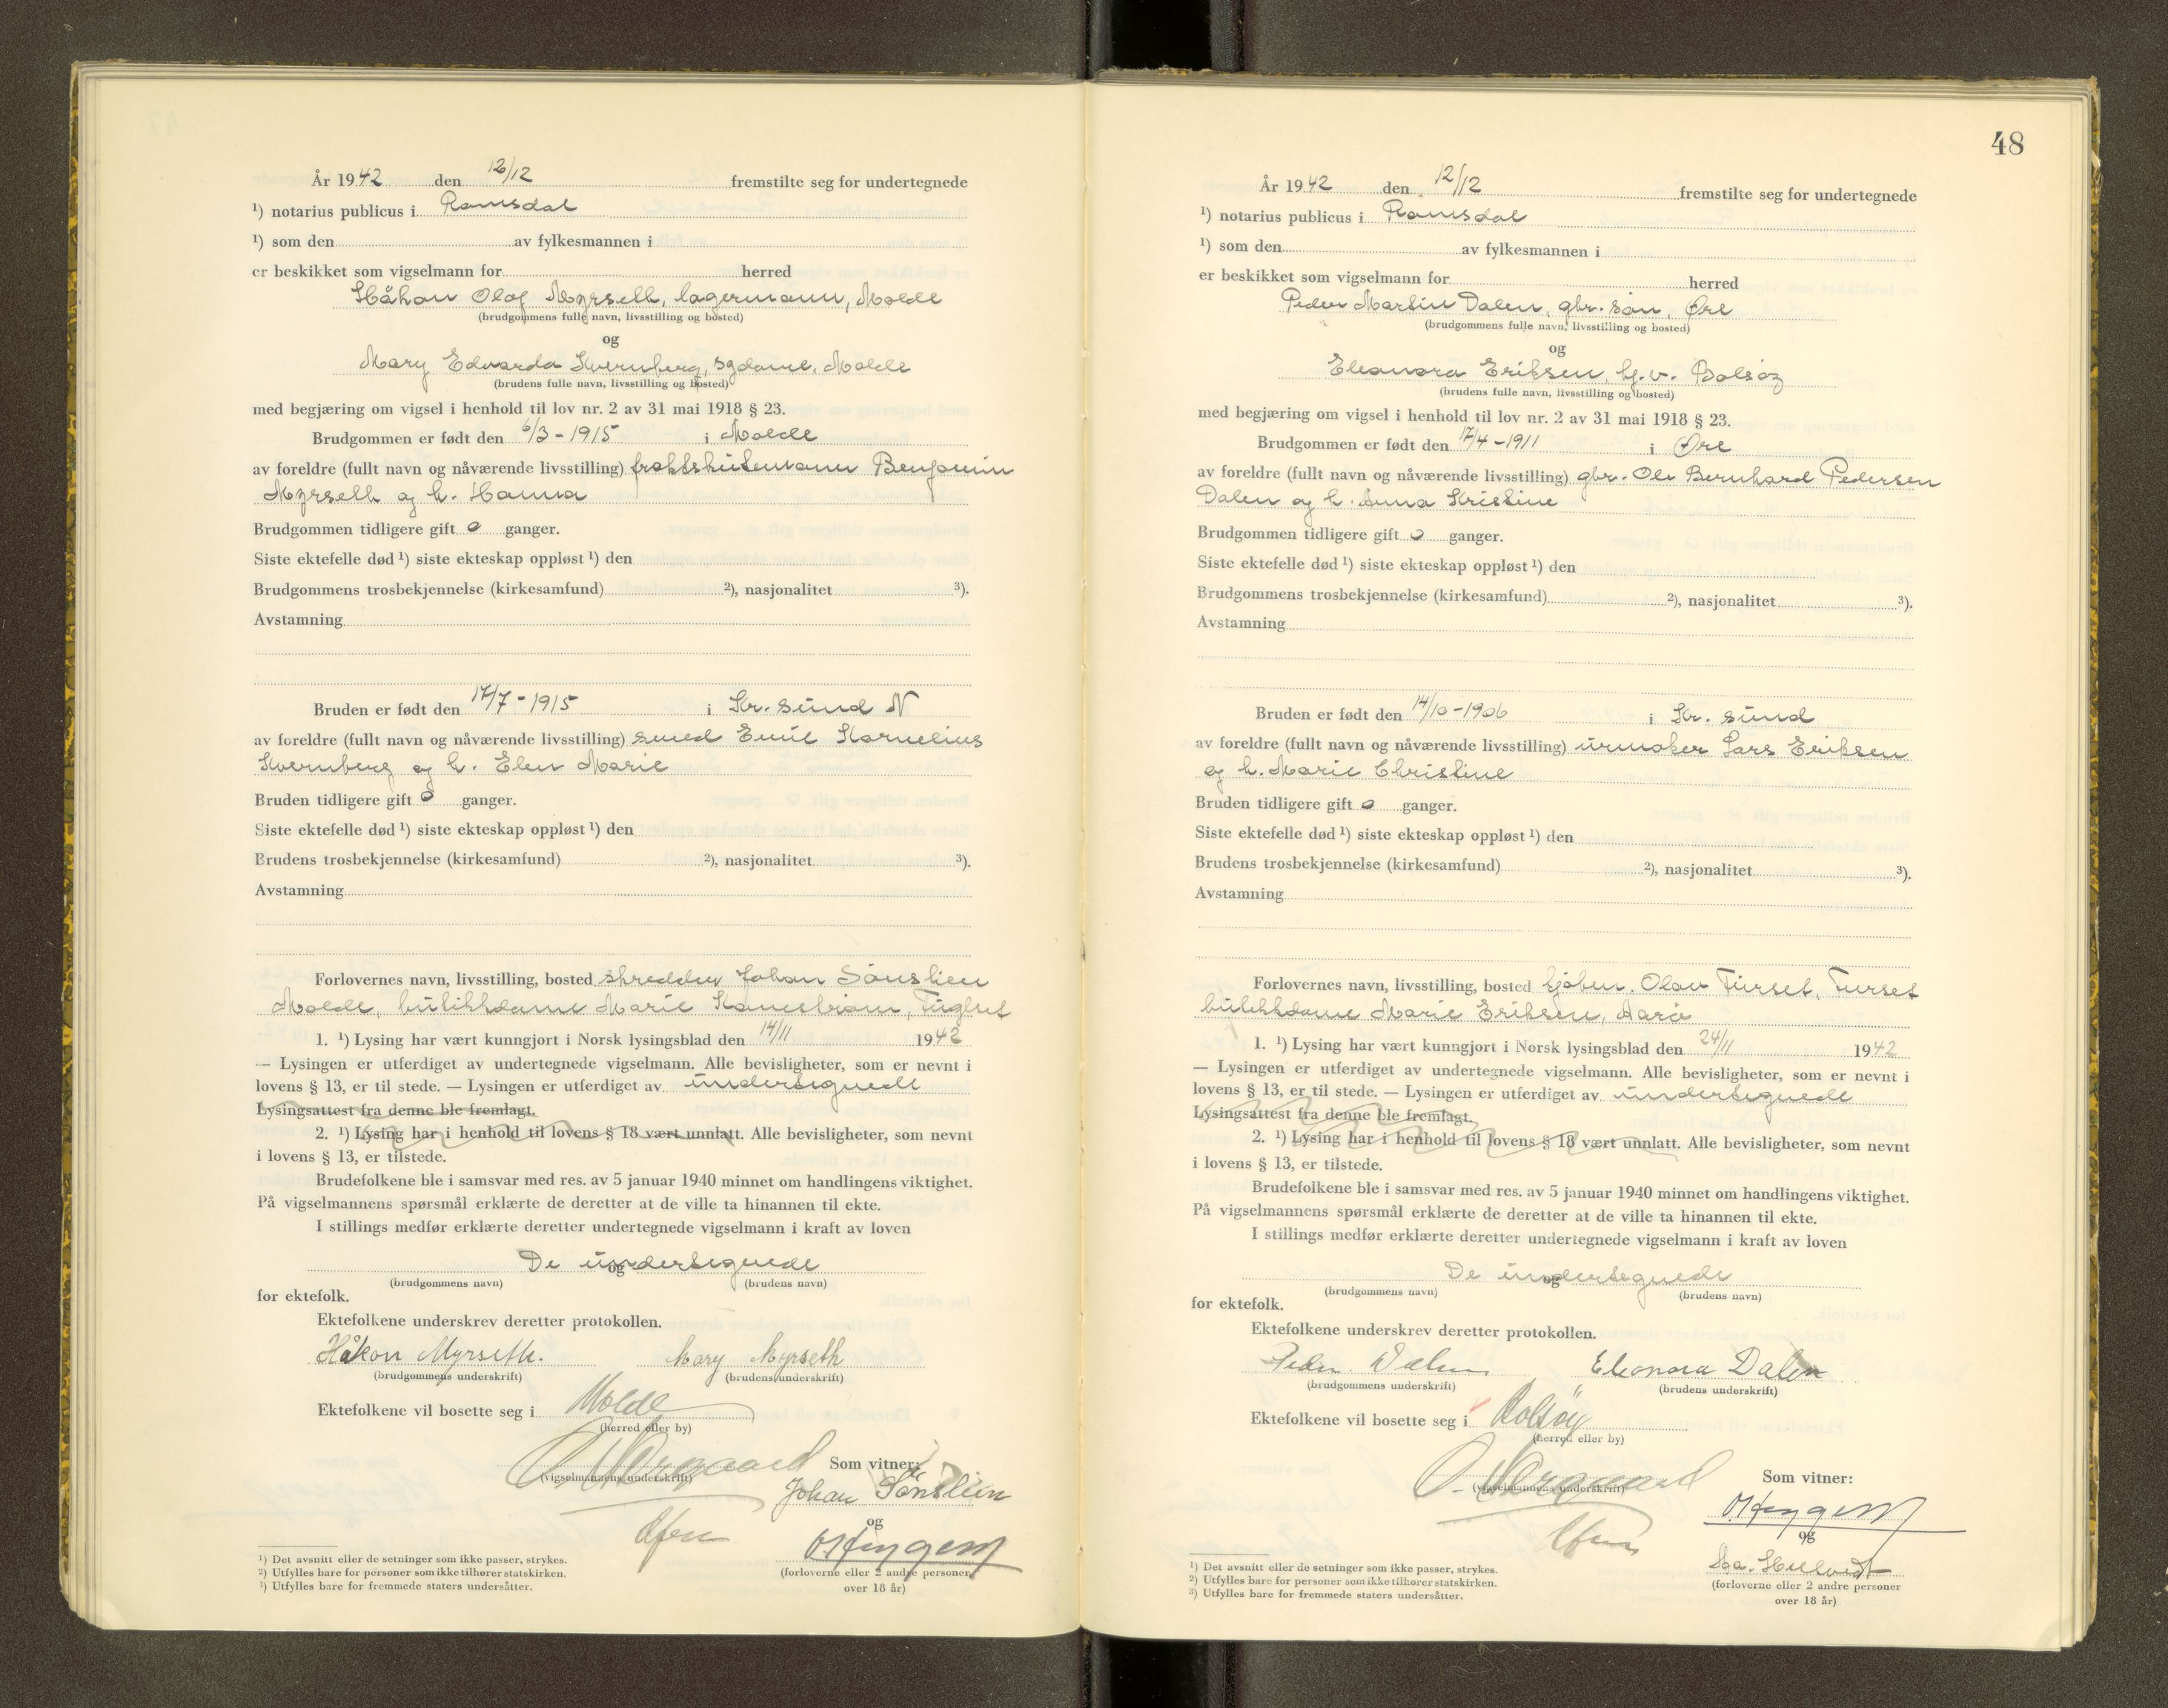 År 1942 den 12/12 fremstilte seg for undertegnede
¹) notarius publicus i Romsdal
¹) som den av fylkesmannen i
er beskikket som vigselmann for herred
Håkon Olaf Myrseth, lagermann, Molde
(brudgommens fulle navn, livsstilling og bosted)
og
Mary Edvarda Kvernberg, sydame, Molde
(brudens fulle navn, livsstilling og bosted)
med begjæring om vigsel i henhold til lov nr. 2 av 31 mai 1918 § 23.
Brudgommen er født den 6/3 - 1915 i Molde
av foreldre (fullt navn og nåværende livsstilling) fraktskutemann Benjamin
Myrseth og h. Hanna
Brudgommen tidligere gift 0 ganger.
Siste ektefelle død ¹) siste ekteskap oppløst ¹) den
Brudgommens trosbekjennelse (kirkesamfund) ²), nasjonalitet ³).
Avstamning
Bruden er født den 17/7 - 1915 i Kr. sund N
av foreldre (fullt navn og nåværende livsstilling) smed Emil Kornelius
Kvernberg og h. Elen Marie
Bruden tidligere gift 0 ganger.
Siste ektefelle død ¹) siste ekteskap oppløst ¹) den
Brudens trosbekjennelse (kirkesamfund) ²), nasjonalitet ³).
Avstamning
Forlovernes navn, livsstilling, bosted skredder Johan Sönslien
Molde, butikkdame Marie
1. ¹) Lysing har vært kunngjort i Norsk lysingsblad den 14/11 1942
— Lysingen er utferdiget av undertegnede vigselmann. Alle bevisligheter, som er nevnt i
lovens § 13, er til stede. — Lysingen er utferdiget av undertegnede
Lysingsattest fra denne ble fremlagt.
2. ¹) Lysing har i henhold til lovens § 18 vært unnlatt. Alle bevisligheter, som nevnt
i lovens § 13, er tilstede.
Brudefolkene ble i samsvar med res. av 5 januar 1940 minnet om handlingens viktighet.
På vigselmannens spørsmål erklærte de deretter at de ville ta hinannen til ekte.
I stillings medfør erklærte deretter undertegnede vigselmann i kraft av loven
De undertegnede
og
(brudgommens navn) (brudens navn)
for ektefolk.
Ektefolkene underskrev deretter protokollen.
Håkon Myrseth. Mary Myrseth
(brudgommens underskrift) (brudens underskrift)
Ektefolkene vil bosette seg i Molde
(herred eller by)
(vigselmannens underskrift)
Som vitner:
Johan Sönslien
og
(forloverne eller 2 andre personer
over 18 år)
¹) Det avsnitt eller de setninger som ikke passer, strykes.
²) Utfylles bare for personer som ikke tilhører statskirken.
³) Utfylles bare for fremmede staters undersåtter.
48
År 1942 den 12/12 fremstilte seg for undertegnede
¹) notarius publicus i Romsdal
¹) som den av fylkesmannen i
er beskikket som vigselmann for herred
Peder Martin Dalen, gbr. sön, Øre
(brudgommens fulle navn, livsstilling og bosted)
og
Eleonora Eriksen, hj. v. Bolsöy
(brudens fulle navn, livsstilling og bosted)
med begjæring om vigsel i henhold til lov nr. 2 av 31 mai 1918 § 23.
Brudgommen er født den 17/4 - 1911 i Øre
av foreldre (fullt navn og nåværende livsstilling) gbr. Ole Bernhard Pedersen
Dalen og h. Anna Kristine
Brudgommen tidligere gift 0 ganger.
Siste ektefelle død ¹) siste ekteskap oppløst ¹) den
Brudgommens trosbekjennelse (kirkesamfund) ²), nasjonalitet ³).
Avstamning
Bruden er født den 14/10 - 1906 i Kr. sund
av foreldre (fullt navn og nåværende livsstilling) urmaker Lars Eriksen
og h. Marie Christine
Bruden tidligere gift 0 ganger.
Siste ektefelle død ¹) siste ekteskap oppløst ¹) den
Brudens trosbekjennelse (kirkesamfund) ²), nasjonalitet ³).
Avstamning
Forlovernes navn, livsstilling, bosted kjöbm. Olav Furset, Furset
butikkdame Marie Eriksen, Aarö
1. ¹) Lysing har vært kunngjort i Norsk lysingsblad den 24/11 1942
— Lysingen er utferdiget av undertegnede vigselmann. Alle bevisligheter, som er nevnt i
lovens § 13, er til stede. — Lysingen er utferdiget av undertegnede
Lysingsattest fra denne ble fremlagt.
2. ¹) Lysing har i henhold til lovens § 18 vært unnlatt. Alle bevisligheter, som nevnt
i lovens § 13, er tilstede.
Brudefolkene ble i samsvar med res. av 5 januar 1940 minnet om handlingens viktighet.
På vigselmannens spørsmål erklærte de deretter at de ville ta hinannen til ekte.
I stillings medfør erklærte deretter undertegnede vigselmann i kraft av loven
De undertegnede
og
(brudgommens navn) (brudens navn)
for ektefolk.
Ektefolkene underskrev deretter protokollen.
Peder Dalen Eleonora Dalen
(brudgommens underskrift) (brudens underskrift)
Ektefolkene vil bosette seg i Bolsöy
(herred eller by)
(vigselmannens underskrift)
Som vitner:
og
(forloverne eller 2 andre personer
over 18 år)
¹) Det avsnitt eller de setninger som ikke passer, strykes.
²) Utfylles bare for personer som ikke tilhører statskirken.
³) Utfylles bare for fremmede staters undersåtter.